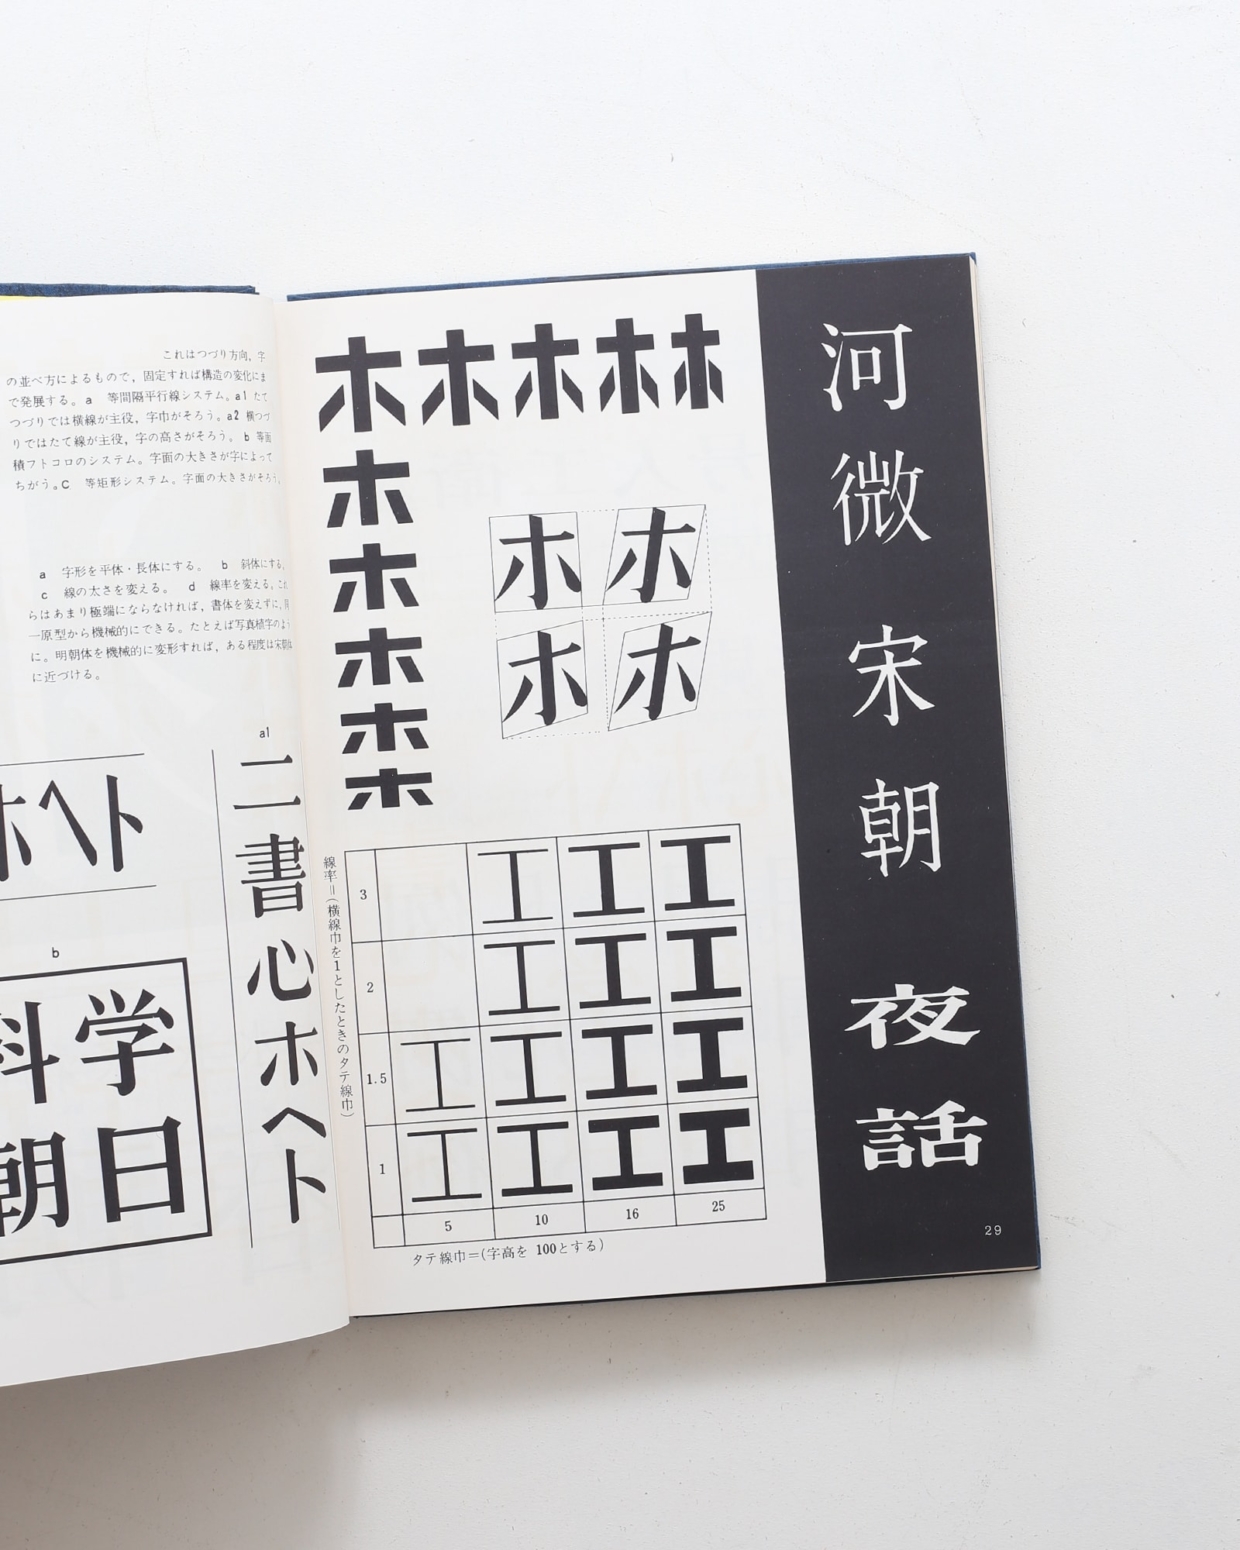 これはつづり方向，字
の並べ方によるもので，固定すれば構造の変化にま
で発展する。a　等間隔平行線システム。a1 たて
つづりでは横線が主役，字巾がそろう。a2 横つづ
りではたて線が主役，字の高さがそろう。b 等面
積フトコロのシステム。字面の大きさが字によって
ちがう。C　等矩形システム。字面の大きさがそろう，
a　字形を平体・長体にする。　b　斜体にする。
c　線の太さを変える。　d　線率を変える。これ
らはあまり極端にならなければ，書体を変えずに，同
一原型から機械的にできる。たとえば写真植字のよう
に。明朝体を機械的に変形すれば，ある程度は宋朝体
に近づける。
ホヘト
a1
二書心ホヘト
b
科学
朝日
ホホホホホ
ホ
ホ
ホ
ホ
ホ
ホホ
ホホ
線率＝(横線巾を1としたときのタテ線巾)
3 エエエ
2 エエエ
1.5 エエエエ
1 エエエエ
5 10 16 25
タテ線巾＝(字高を 100とする)
河微宋朝
夜話
29